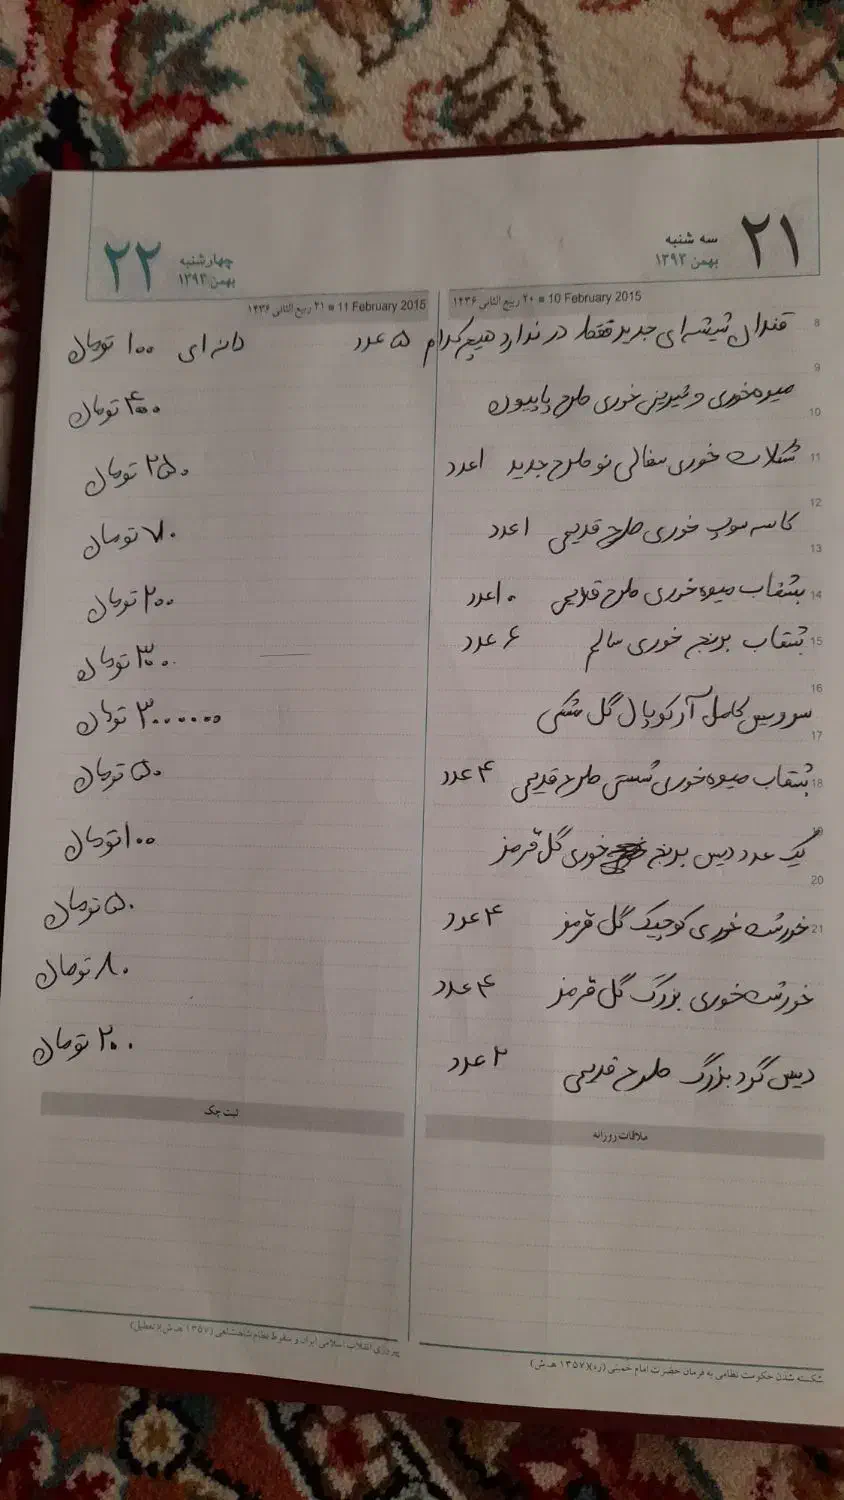 ۲۱ سه شنبه بهمن ۱۳۹۳
۲۲ چهارشنبه بهمن ۱۳۹۳
10 February 2015 ■ ۲۰ ربیع الثانی ۱۴۳۶
11 February 2015 ■ ۲۱ ربیع الثانی ۱۴۳۶
8 قندان شیشه ای جدید فقط در ندارد هیچ کدام ۵ عدد دانه ای ۱۰۰ تومان
9
میوه خوری و شیرینی خوری طرح پاپیون ۴۰۰ تومان
10
11 شکلات خوری سفالی نو طرح جدید ۱ عدد ۲۵۰ تومان
12
کاسه سوپ خوری طرح قدیمی ۱ عدد ۷۰ تومان
13
14 بشقاب میوه خوری طرح قدیمی ۱۰ عدد ۲۰۰ تومان
15 بشقاب برنج خوری سالم ۶ عدد ۳۰۰ تومان
16
سرویس کامل آرکوپال گل مشکی ۳۰۰۰۰۰۰ تومان
17
18 بشقاب میوه خوری شستی طرح قدیمی ۴ عدد ۵۰ تومان
19
یک عدد دیس برنج خوری گل قرمز ۱۰۰ تومان
20
21 خورشت خوری کوچیک گل قرمز ۴ عدد ۵۰ تومان
خورشت خوری بزرگ گل قرمز ۴ عدد ۸۰ تومان
دیس گرد بزرگ طرح قدیمی ۲ عدد ۲۰۰ تومان
ملاقات روزانه
ثبت چک
شکسته شدن حکومت نظامی به فرمان حضرت امام خمینی (ره)(۱۳۵۷ هـ ش)
پیروزی انقلاب اسلامی ایران و سقوط نظام شاهنشاهی (۱۳۵۷ هـ ش)(تعطیل)